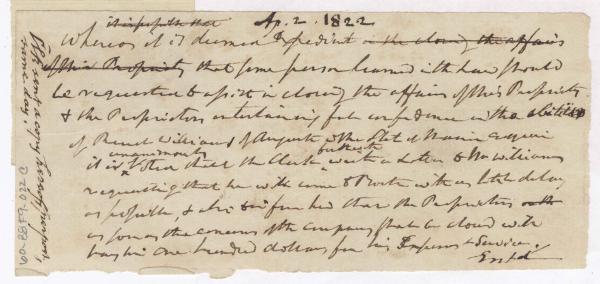 it is possible that
Ap. 2. 1822
Whereas it is deemed Expedient in the closing the affairs
of this Propriety that some person learned in the law should
be requested to assist in closing the affairs of this Propriety
& the Proprietors entertaining full confidence in the abilities
of Reuel Williams of Augusta & the State of Maine Esquire
unanimously forthwith
it is Voted that the Clerk write a Letter to Mr Williams
requesting that he will come to Boston with as little delay
as possible, & also to inform him that the Proprietors will
as soon as the concerns of the company shall be closed with
pay him one hundred dollars for his Expenses & Services.
Ent'd
sent a copy hereof
same day.
60-8879.022 C